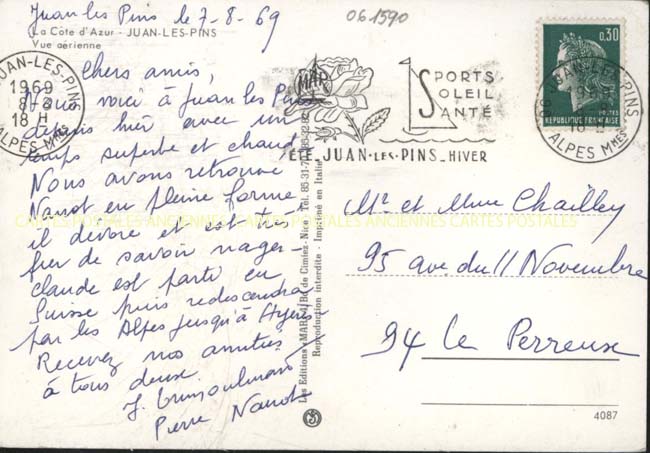 Juan les Pins le 7-8-69
061590
La Côte d'Azur - JUAN-LES-PINS
Vue aérienne
Chers amis,
Nous voici à Juan les Pins
depuis hier avec un
temps superbe et chaud
Nous avons retrouvé
en pleine forme
il dévore et est très
fier de savoir nager
claude est parti en
Suisse puis redescendra
par les Alpes jusqu'à Hyères
Recevez nos amitiés
à tous deux
Pierre
JUAN-LES-PINS
1969
8-8
18 H
ALPES Mmes
MAR
SPORTS
SOLEIL
SANTÉ
ÉTÉ_JUAN-LES-PINS_HIVER
0,30
POSTES
REPUBLIQUE FRANÇAISE
06 JUAN-LES-PINS
18 H
ALPES Mmes
Mr et Mme Chailley
95 ave. du 11 Novembre
94 Le Perreux
Reproduction interdite - Imprimé en Italie
CARTES POSTALES ANCIENNES CARTES POSTALES ANCIENNES CARTES POSTALES
4087